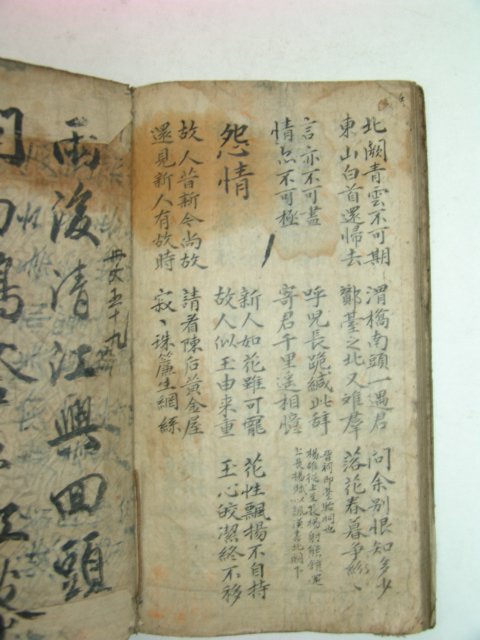 北闕青雲不可期
東山白首還歸去
渭橋南頭一遇君
酇臺之北又難群
問余別恨知多少
落花春暮爭紛〻
言亦不可盡
情亦不可極
呼兒長跪緘此辞
寄君千里遙相憶
楊雄從上至長楊射熊館還
上長楊賦以諷漢書北闕下
怨情
新人如花雖可寵
故人似玉由来重
花性飄揚不自持
玉心皎潔終不移
故人昔新今尚故
還見新人有故時
請看陳后黃金屋
寂〻珠簾生網絲
雨後清江興回頭